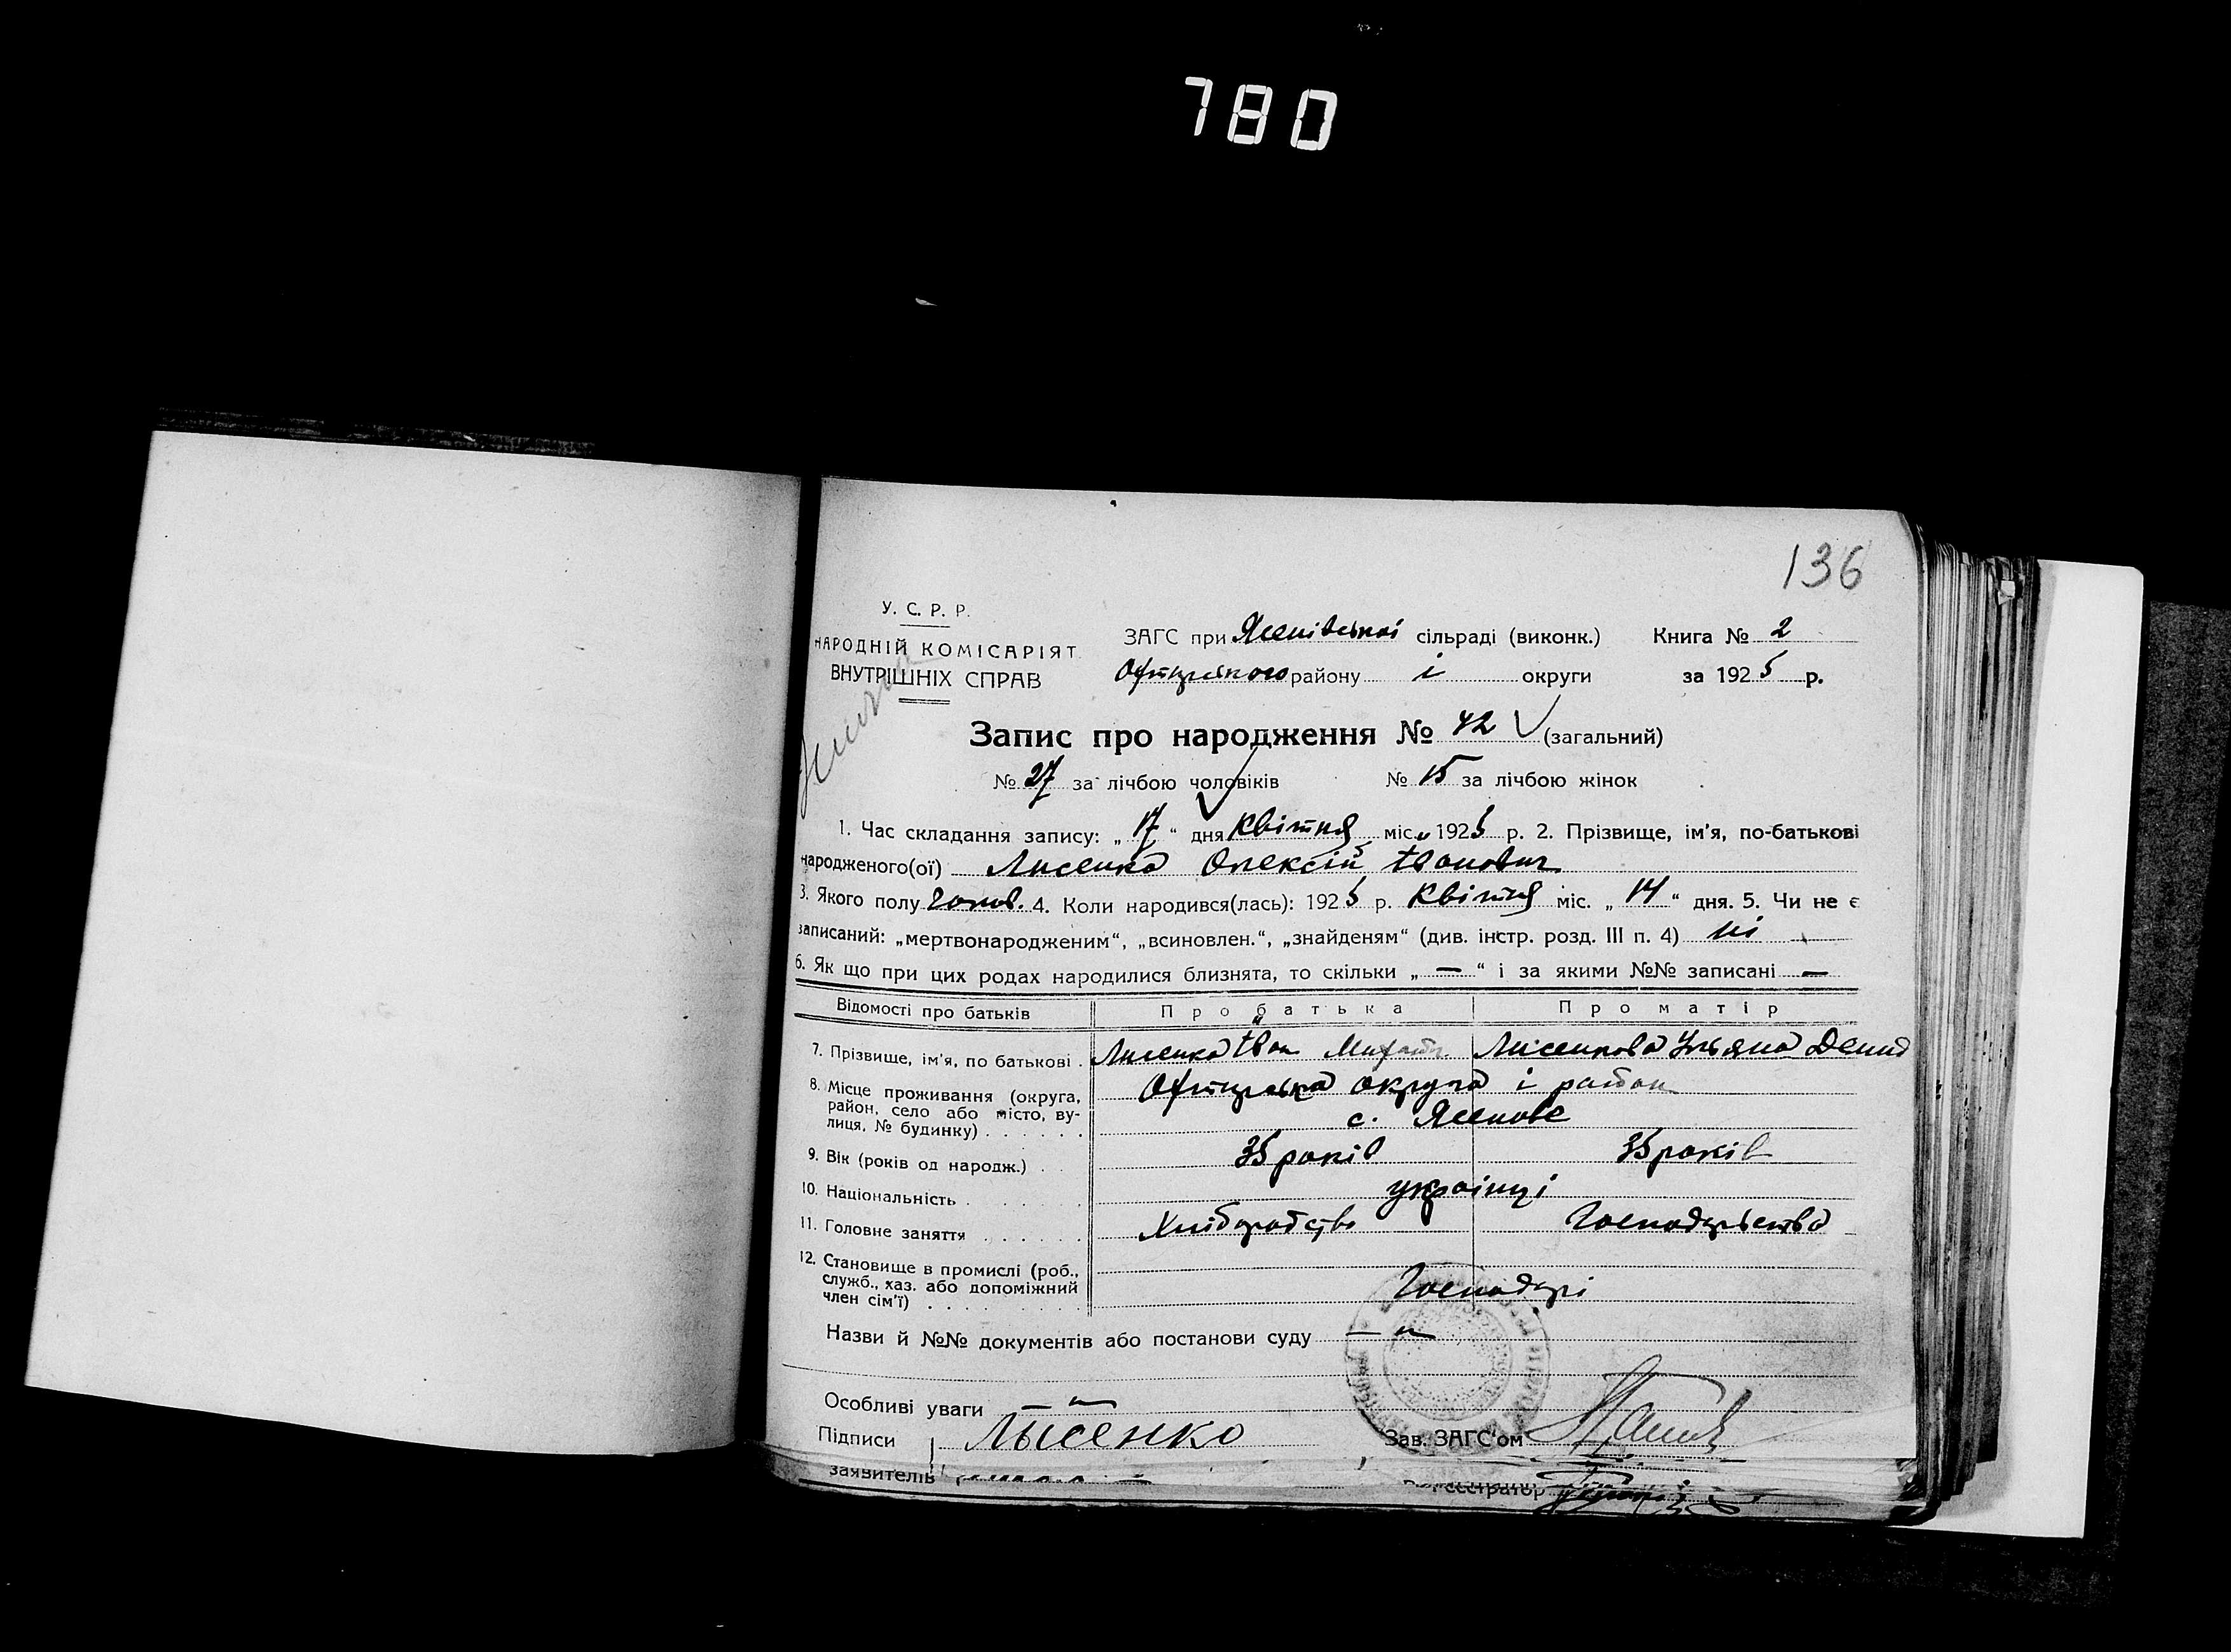 780
136
У. С. Р. Р.
НАРОДНІЙ КОМІСАРІЯТ
ВНУТРІШНІХ СПРАВ
ЗАГС при Ясенівській сільраді (виконк.) Книга № 2
району і округи за 1925 р.
Запис про народження № 42 (загальний)
№ 27 за лічбою чоловіків № 15 за лічбою жінок
1. Час складання запису: „ 17 “ дня Квітня міс. 1925 р. 2. Прізвище, ім’я, по-батькові
народженого(ої) Лисенко Олексій Іванович
3. Якого полу Чолов. 4. Коли народився(лась): 1925 р. Квітня міс. „ 14 “ дня. 5. Чи не є
записаний: „мертвонародженим“, „всиновлен.“, „знайденям“ (див. інстр. розд. III п. 4) ні
6. Як що при цих родах народилися близнята, то скільки „ — “ і за якими №№ записані —
Відомості про батьків Про батька Про матір
7. Прізвище, ім’я, по батькові . Лисенко Іван Лисенкова Уляна
8. Місце проживання (округа, округа і район
район, село або місто, ву- с. Ясенове
лиця, № будинку) . . . . . .
9. Вік (років од народж.) . . 35 років 35 років
10. Національність . . . українці
11. Головне заняття . . . . . . Хліборобство Господарьства
12. Становище в промислі (роб.,
служб., хаз. або допоміжний Господарі
член сім’ї) . . . . . . . .
Назви й №№ документів або постанови суду — „
Особливі уваги — „ —
Підписи Лысенко Зав. ЗАГС‘ом
заявителів Реєстратор